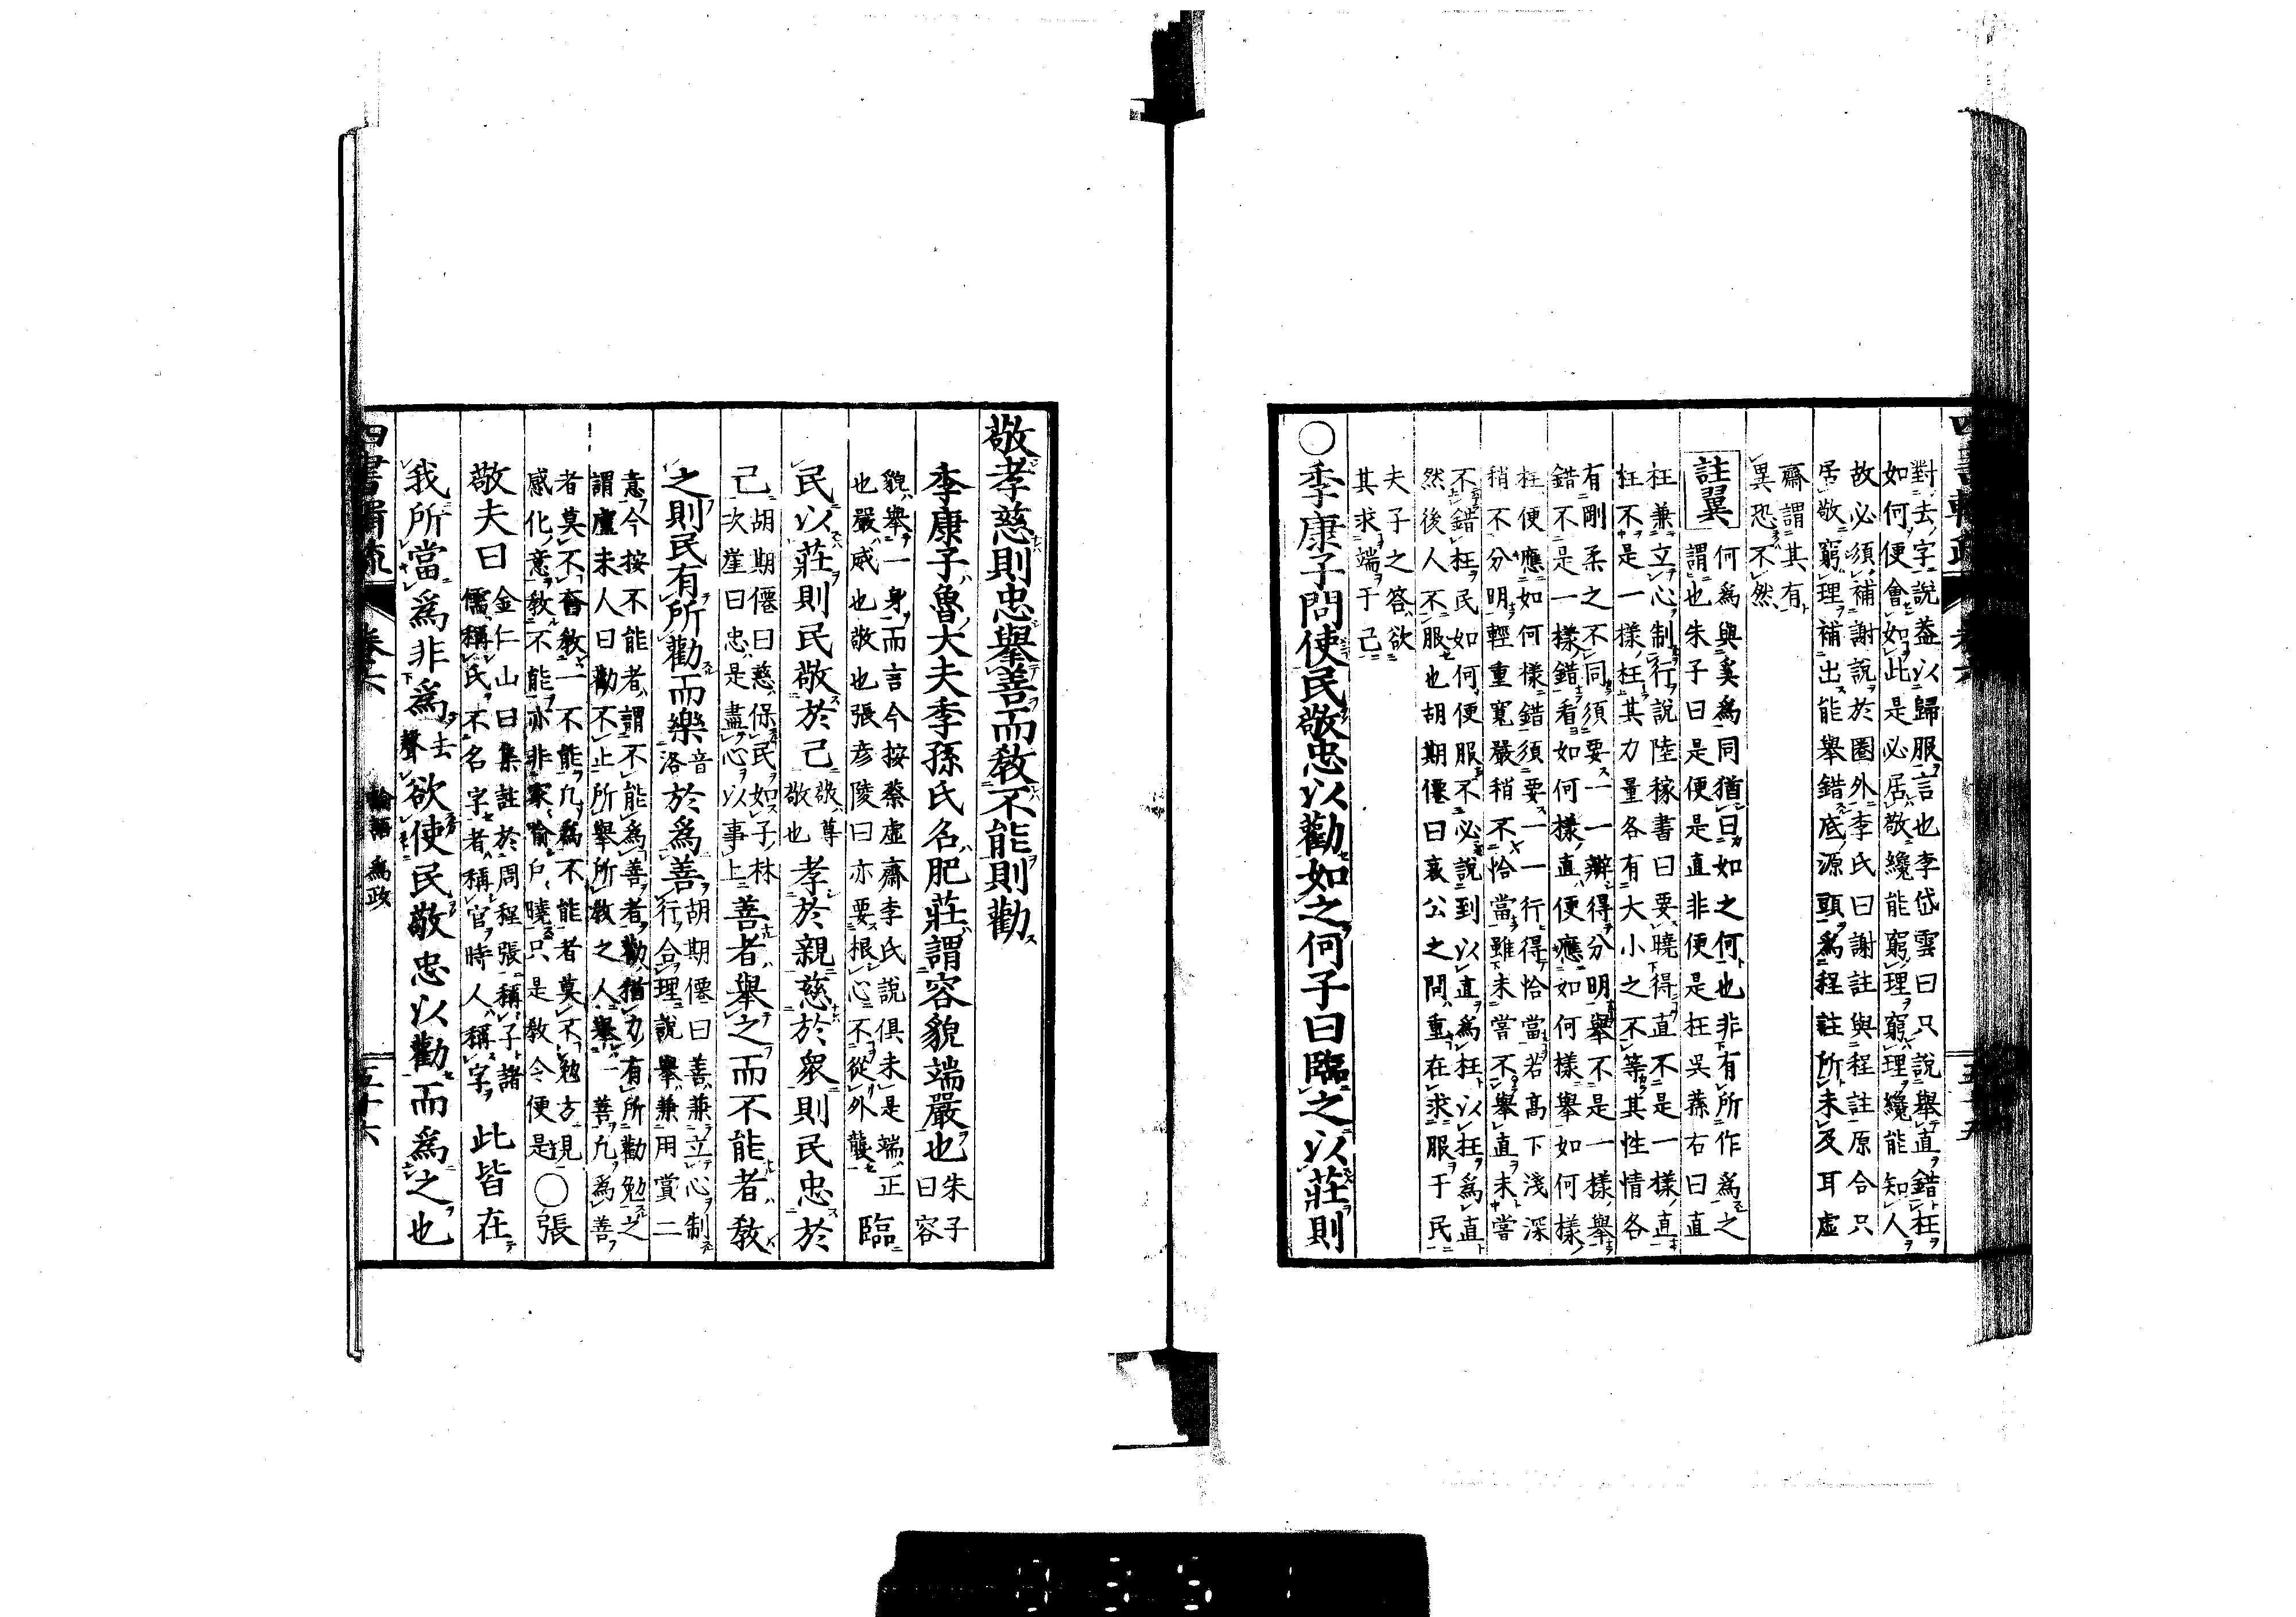 對去字說蓋以歸服言也李岱雲曰只說舉直錯枉
如何便會如此是必居敬纔能窮理窮理纔能知人
故必須補謝說於圈外李氏曰謝註與程註原合只
居敬窮理補出能舉錯底源頭為程註所未及耳虛
齋謂其有
異恐不然
註翼
何為與奚為同猶曰如之何也非有所作為之
謂也朱子曰是便是直非便是枉吳蓀右曰直
枉兼立心制行說陸稼書曰要曉得直不是一樣直
枉不是一樣枉其力量各有大小之不等其性情各
有剛柔之不同須要一一辨得分明舉不是一樣舉
錯不是一樣錯看如何樣直便應如何樣舉如何樣
枉便應如何樣錯須要一一行得恰當若高下淺深
稍不分明輕重寬嚴稍不恰當雖未嘗不舉直未嘗
不錯枉民如何便服不必說到以直為枉以枉為直
然後人不服也胡期僊曰哀公之問重在求服于民
夫子之答欲
其求端于己
○季康子問使民敬忠以勸如之何子曰臨之以莊則
敬孝慈則忠舉善而教不能則勸
季康子魯大夫季孫氏名肥莊謂容貌端嚴也
朱子
曰容
貌舉一身而言今按蔡虛齋李氏說俱未是端正
也嚴威也敬也張彥陵曰亦要根心不從外襲
臨
民以莊則民敬於己
敬尊
敬也
孝於親慈於眾則民忠於
己
胡期僊曰慈保民如子林
次崖曰忠是盡心以事上
善者舉之而不能者教
之則民有所勸而樂
音
洛
於為善
胡期僊曰善兼立心制
行合理說舉兼用賞二
意今按不能者謂不能為善者勸猶力有所勸勉之
謂盧未人曰勸不止所舉所教之人舉一善凡為善
者莫不奮教一不能凡為不能者莫不勉方見
感化意教不能亦非家喻戶曉只是教令便是
○張
敬夫曰
金仁山曰集註於周程張稱子諸
儒稱氏不名字者稱官時人稱字
此皆在
我所當為非為
去
聲
欲使民敬忠以勸而為之也
卷六
論語 為政
五十六